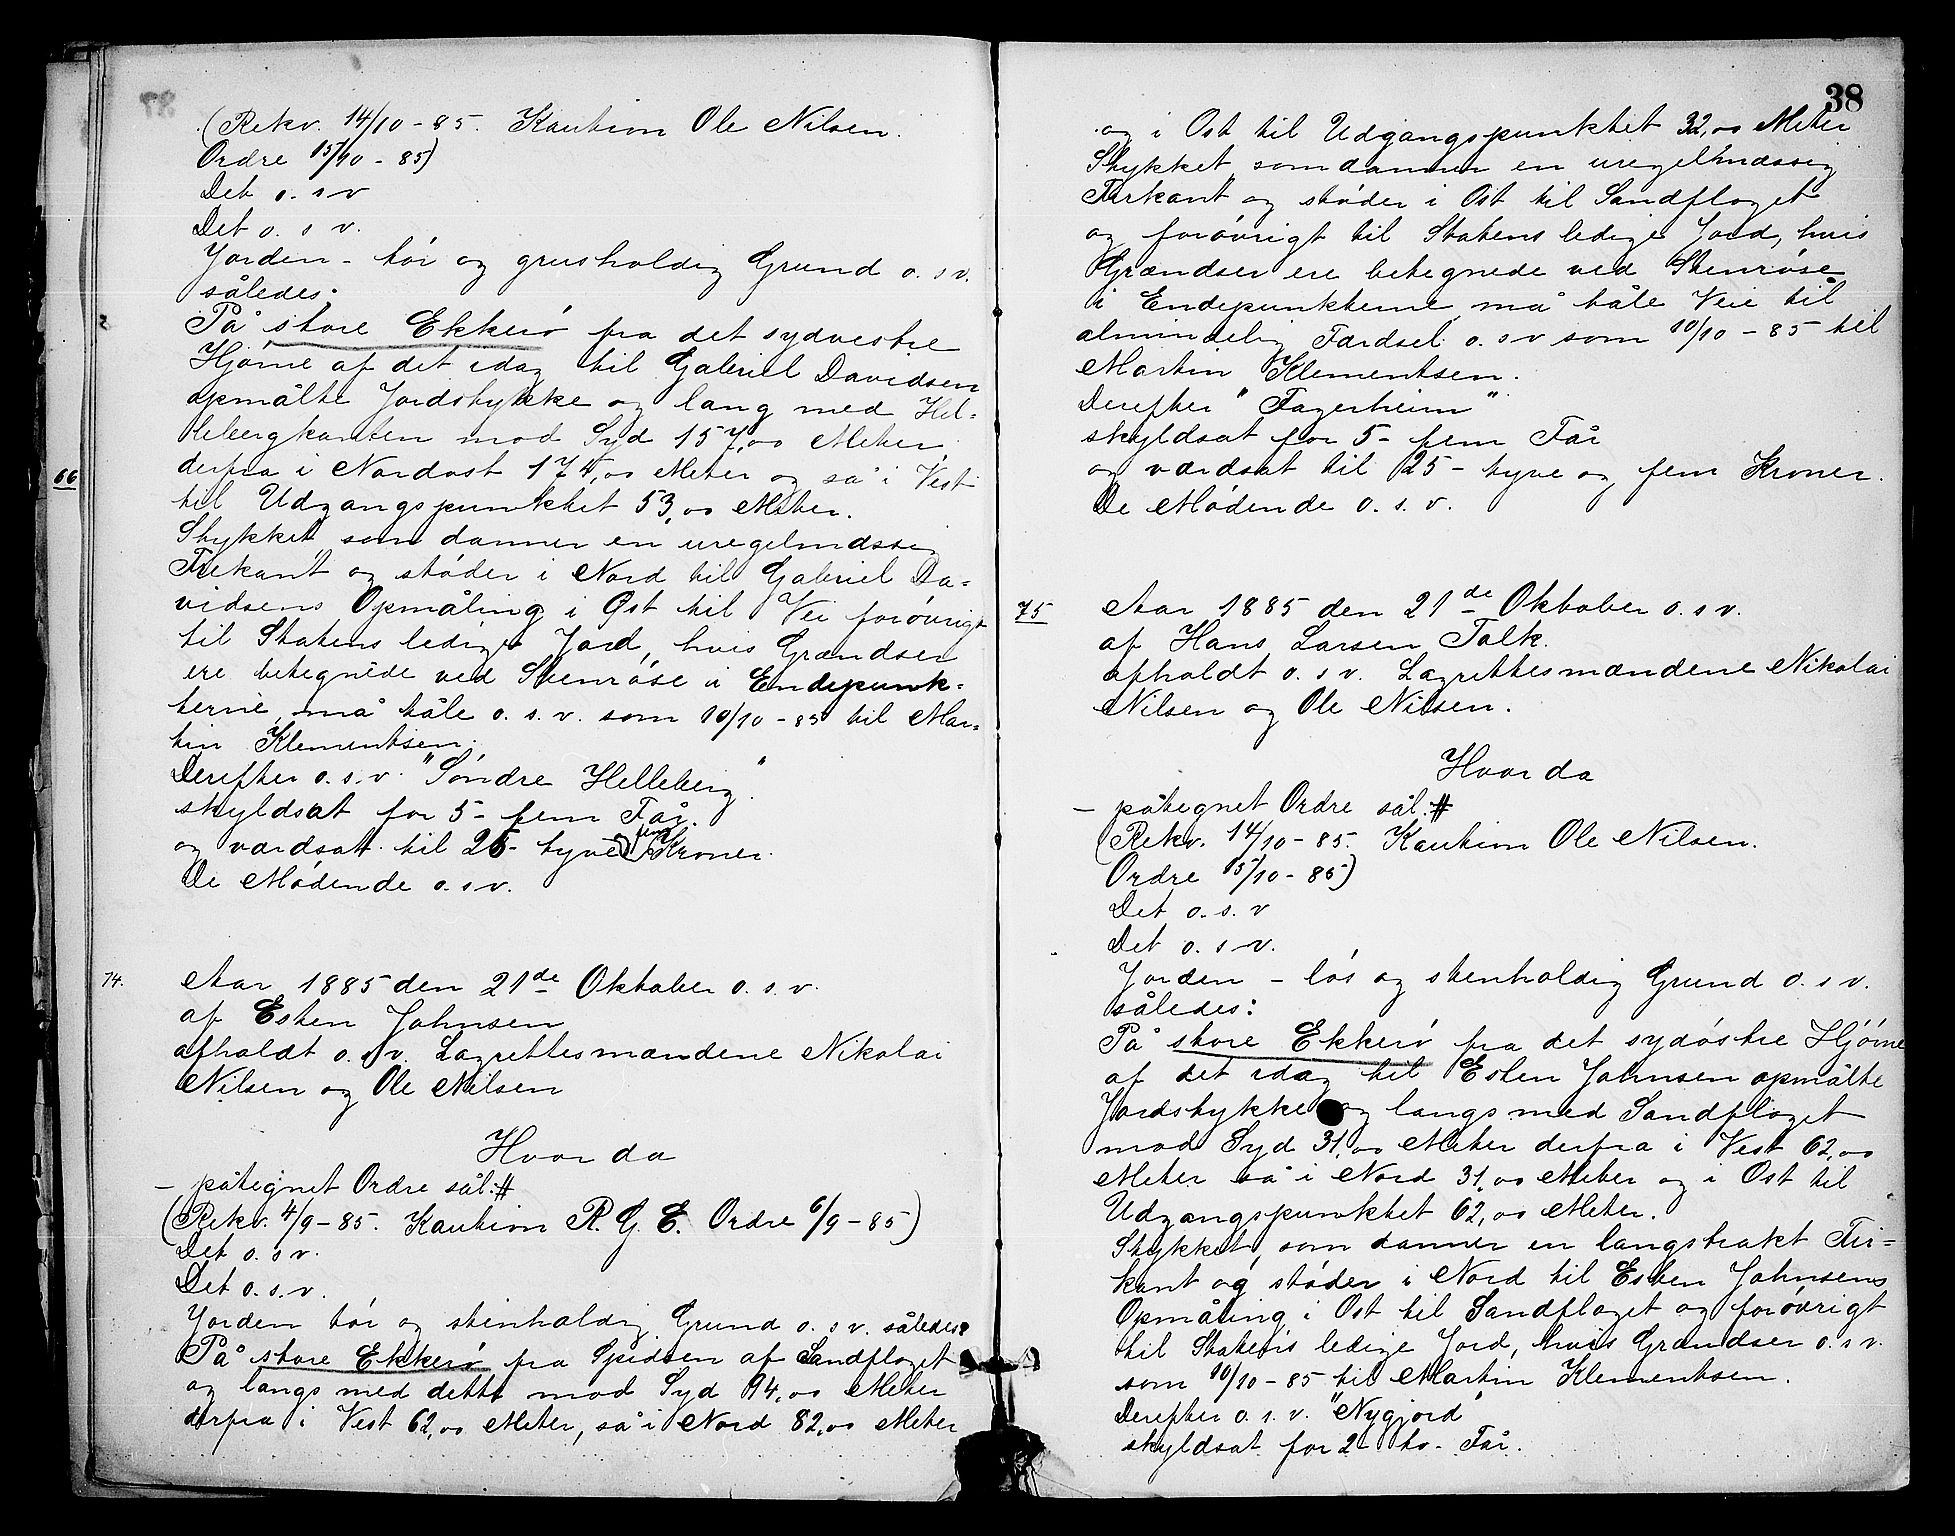 (Rekv. 14/10 - 85. Kaution Ole Nilsen.
Ordre 15/10 - 85)
Det o. s v
Det o. s v.
Jorden - tör og grusholdig Grund o. s v.
således:
På store Ekkerö fra det sydvestre
Hjörne af det idag til Gabriel Davidsen
opmålte Jordstykke og lang med Hel-
lebergkanten mod Syd 157,00 Meter,
derfra i Nordost 174,00 Meter og så i Vest
66
til Udgangspunktet 53,00 Meter.
Stykket som danner en uregelmæssig
Trekant og støder i Nord til Gabriel Da-
vidsens Opmåling i Öst til Vei forövrigt
til Statens ledige Jord, hvis Grændser
ere betegnede ved Stenröse i Endepunk-
terne, må tåle o. s. v. som 10/10 - 85 til Mar-
tin Klementsen.
Derefter o. s. v. "Söndre Helleberg".
skyldsat for 5 - fem Får.
og værdsat til 25 - tyve og fem Kroner.
De Mödende o. s v.
74.
Aar 1885 den 21de Oktober o. s. v.
af Esten Johnsen
afholdt o. s. v. Lagrettesmændene Nikolai
Nilsen og Ole Nilsen
Hvor da
— påtegnet Ordre sål. #
(Rekv. 4/9 - 85. Kaution R. G. E. Ordre 6/9 - 85)
Det o. s v.
Det o. s. v.
Jorden tör og stenholdig Grund o. s v. således:
På store Ekkerö fra Spidsen af Sandfloget
og langs med dette mod Syd 94,00 Meter
derfra i Vest 62,00 Meter, så i Nord 82,00 Meter
38
og i Ost til Udgangspunktet 32,00 Meter
Stykket som danner en uregelmæssig
Firkant og støder i Ost til Sandfloget
og forövrigt til Statens ledige Jord, hvis
Grændser ere betegnede ved Stenröse
i Endepunkterne, må tåle Veie til
almindelig Færdsel o. s v som 10/10 - 85 til
Martin Klementsen.
Derefter "Fagerheim"
skyldsat for 5 - fem Får
og værdsat til 25 - tyve og fem Kroner.
De Mödende o. s. v.
75
Aar 1885 den 21de Oktober o. s. v.
af Hans Larsen Talk.
afholdt o. s v. Lagrettesmændene Nikolai
Nilsen og Ole Nilsen.
Hvor da
— påtegnet Ordre sål. #
(Rekv. 14/10 - 85. Kaution Ole Nilsen.
Ordre 15/10 - 85)
Det o. s. v
Det o. s v.
Jorden - lös og stenholdig Grund o. s v.
således:
På store Ekkerö fra det sydöstre Hjörne
af det idag til Esten Johnsen opmålte
Jordstykke og langs med Sandfloget
mod Syd 31,00 Meter derfra i Vest 62,00
Meter så i Nord 31,00 Meter og i Ost til
Udgangspunktet 62,00 Meter.
Stykket, som danner en langstrakt Fir-
kant og støder i Nord til Esten Johnsens
Opmåling, i Ost til Sandfloget og forövrigt
til Statens ledige Jord, hvis Grændser o. s v.
som 10/10 - 85 til Martin Klementsen.
Derefter o. s. v. "Nygjord"
skyldsat for 2 - to - Får.